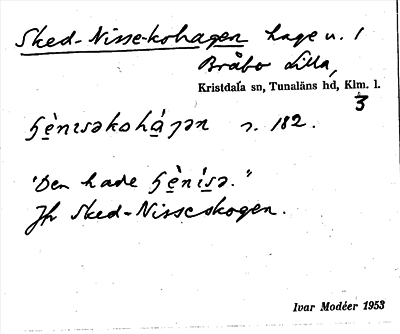 Sked-Nisse-kohagen hage u. 1
Bråbo Lilla,
Kristdala sn, Tunaläns hd, Klm. l.
3
ɧènɩsəkohágən s. 182.
"Den hade ɧènɩ́sə."
Jfr Sked-Nisseskogen.
Ivar Modéer 1953